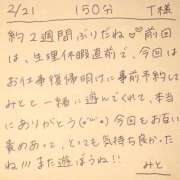 2/21 150分 T様
約2週間ぶりだね♡♡前回
は、生理休暇直前で、今回は
お仕事復帰明けに事前予約して
みとと一緒に遊んでくれて、本当
にありがとう(o^^o)今回もお互い
責めあって、とっても気持ち良かった
ね!!!また遊ぼうね!!
みと